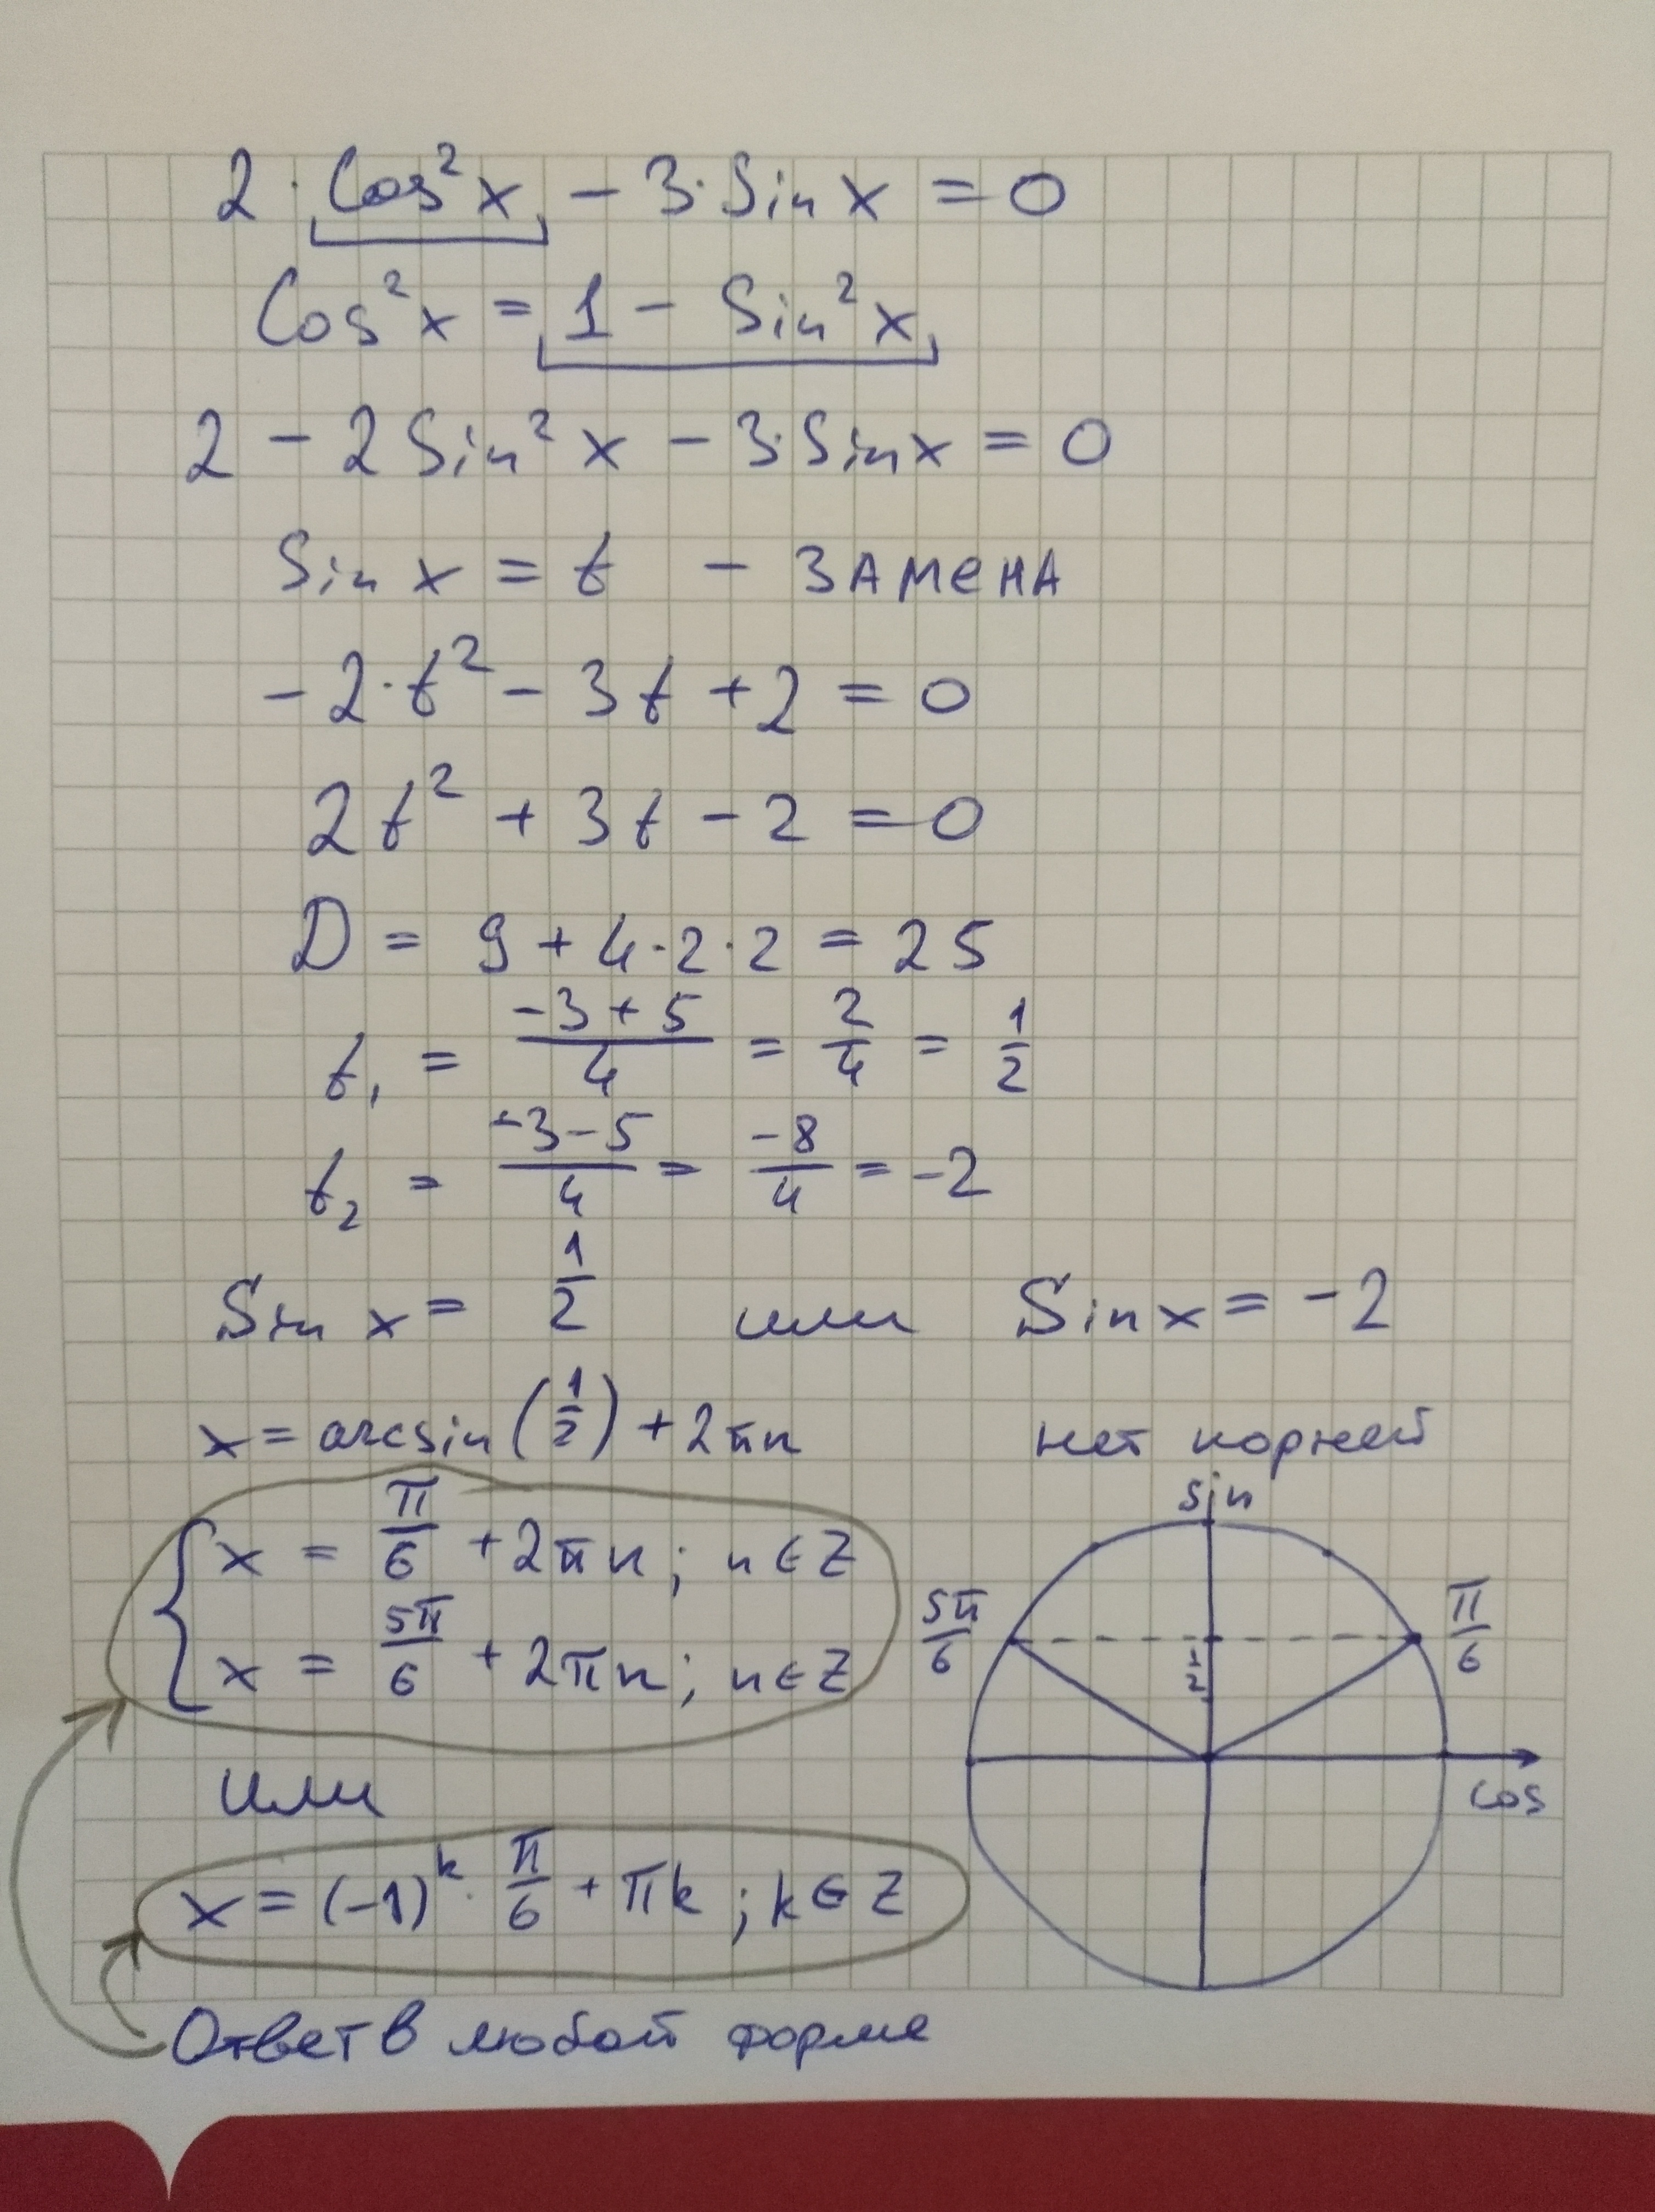 2 · Cos²x - 3·Sin x = 0
Cos²x = 1 - Sin²x
2 - 2Sin²x - 3·Sinx = 0
Sin x = t - ЗАМЕНА
-2·t² - 3t + 2 = 0
2t² + 3t - 2 = 0
D = 9 + 4·2·2 = 25
t₁ = (-3+5)/4 = 2/4 = 1/2
t₂ = (-3-5)/4 = -8/4 = -2
Sin x = 1/2 или Sin x = -2
x = arcsin(1/2) + 2πn нет корней
{ x = π/6 + 2πn; n∈Z
x = 5π/6 + 2πn; n∈Z
или
x = (-1)ᵏ · π/6 + πk; k∈Z
Ответ в любой форме
sin
5π/6 π/6
1/2
cos